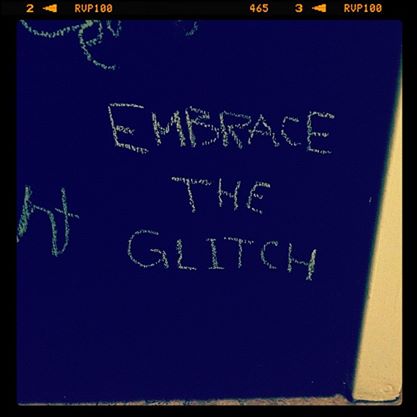 2 RVP100 465 3 RVP100
EMBRACE
THE
GLITCH